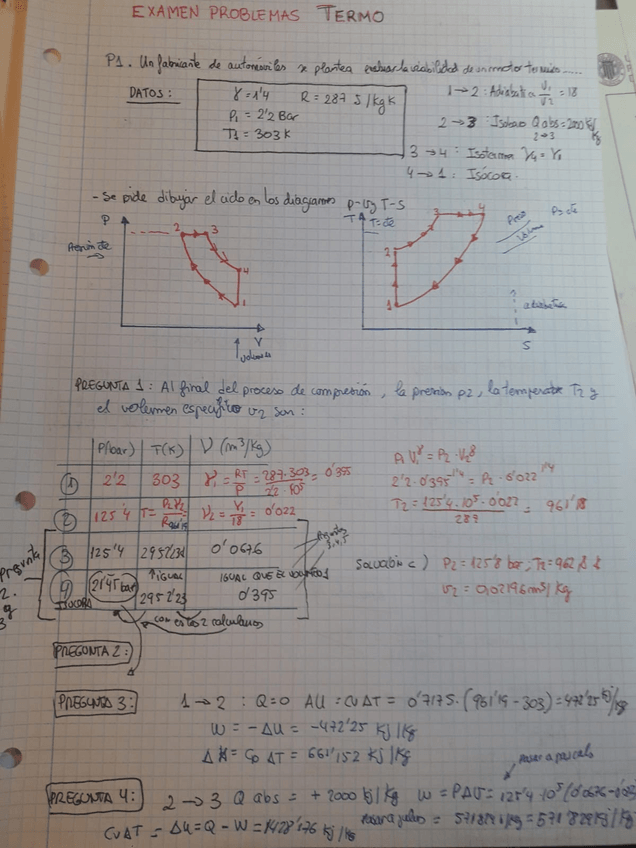 EXAMEN PROBLEMAS TERMO
P1. Un fabricante de automóviles se plantea evaluar la viabilidad de un motor termico.....
DATOS:
γ = 1'4 R = 287 J/kg K
P1 = 2'2 Bar
T1 = 303 K
1 → 2 : Adiabatica V1/V2 = 18
2 → 3 : Isobara Q abs = 2000 kJ/kg
2→3
3 → 4 : Isoterma V4 = V1
4 → 1 : Isócora.
- Se pide dibujar el ciclo en los diagramas P-V y T-S
P
2
3
4
1
V
volumen
T
T=cte
3
4
2
1
S
P=cte
Volumen
adiabatica
PREGUNTA 1: Al final del proceso de compresión, la presion p2, la temperatura T2 y
el volumen especifico v2 son:
P(bar) T(K) V (m³/kg)
1 2'2 303 V1 = RT/P = 287·303/2'2·10⁵ = 0'395
2 125'4 T = P2 V2/R = 961'19 V2 = V1/18 = 0'022
3 125'4 2952'23 0'0676
4 21'45 bar 2952'23 0'395
ISOCORA
↑ IGUAL
IGUAL QUE EL VOLUMEN 1
con estos 2 calculamos
Pregunta
2.
y
3
P1 V1^γ = P2 · V2^γ
2'2 · 0'395^1'4 = P2 · 0'022^1'4
T2 = 125'4 · 10⁵ · 0'022/287 = 961'18
Solución c) P2 = 125'8 bar; T2 = 962'8 k
v2 = 0,02196 m³/kg
PREGUNTA 2:
PREGUNTA 3:
1 → 2 : Q = 0 ΔU = CvΔT = 0'7175 · (961'19 - 303) = 472'25 kJ/kg
W = - ΔU = - 472'25 kJ/kg
ΔH = Cp ΔT = 661'152 kJ/kg
PREGUNTA 4:
2 → 3 Q abs = + 2000 kJ/kg W = PΔV = 125'4 10⁵ (0'0676 -
pasar a pascales
CvΔT = ΔU = Q - W = 1428'176 kJ/kg